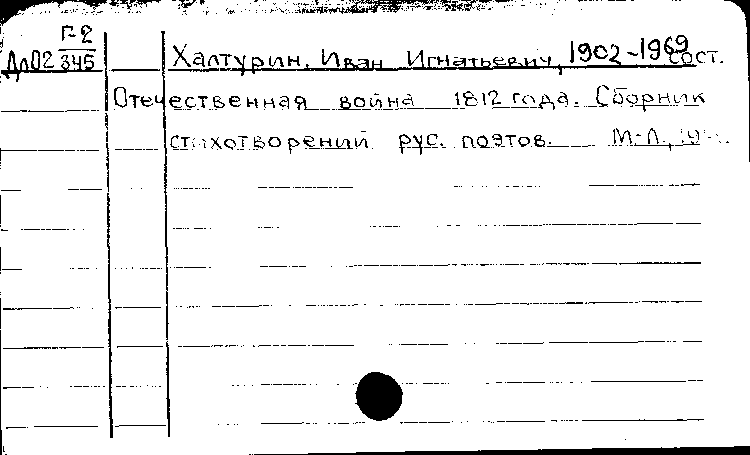 Г-2
Дл02 345
Халтурин, Иван Игнатьевич, 1902-1969 сост.
Отечественная война 1812 года. Сборник
стихотворений рус. поэтов. М-Л.,